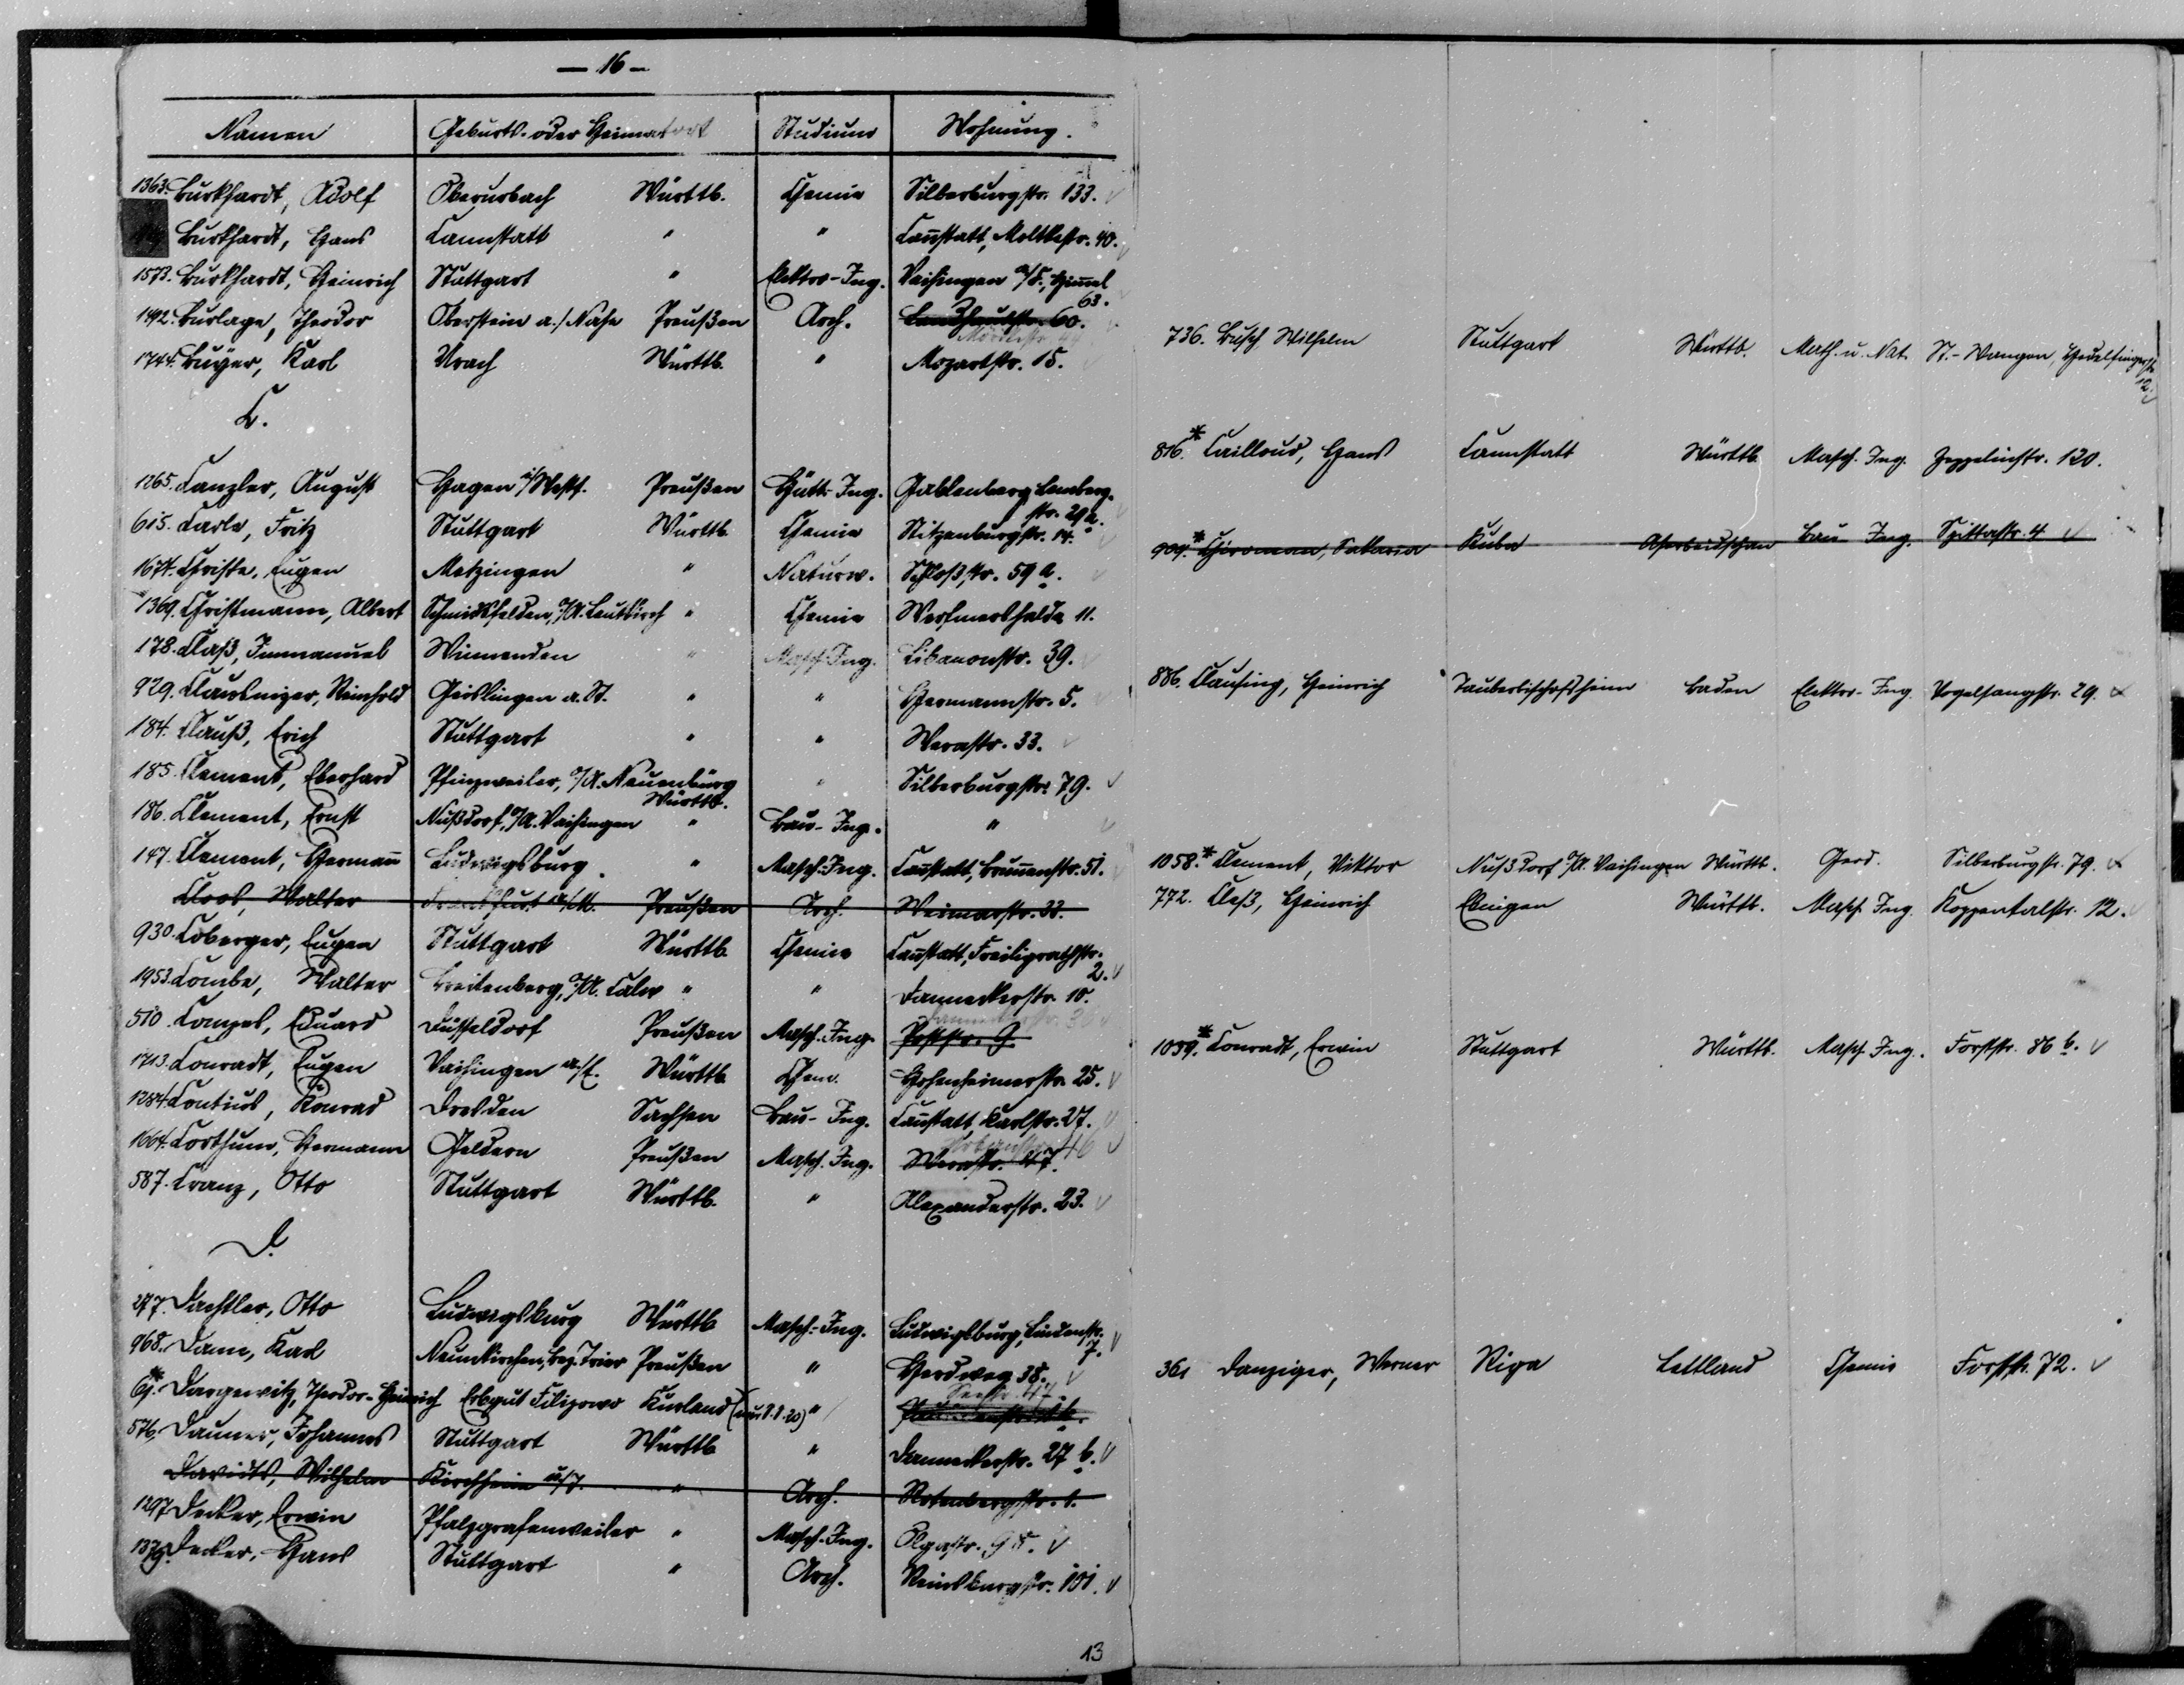 — 16 —
Namen Geburts- oder Heimatort Studium Wohnung.
1363. Burkhardt, Adolf Oberurbach Württb. Chemie Silberburgstr. 133.
Burkhardt, Hans Cannstatt " " Cañstatt, Moltkestr. 40.
1573. Burkhardt, Heinrich Stuttgart " Elektro-Ing. Vaihingen a/F., Himmel
63.
1492. Burlage, Theodor Oberstein a./Nahe Preußen Arch. 60.
1744. Karl Urach Württb. " Mozartstr. 15.
C.
1265. Canzler, August Hagen i/Westf. Preußen Hütt. Ing. Gablenberg Lemberg-
str. 29a.
615. Carle, Fritz Stuttgart Württb. Chemie Nitzenburgstr. 14.
1674. Christe, Eugen Metzingen " Naturw. Schloßstr. 59a.
1369. Christmann, Albert Schmidsfelden, O/A. Leutkirch " Chemie Werfmershalde 11.
178. Claß, Immanuel Winnenden " Masch. Ing. Libanonstr. 39.
929. Clausnizer, Reinhold Geislingen a. St. " " Hermannstr. 5.
184. Clauß, Erich Stuttgart " " Werastr. 33.
185. Clement, Eberhard Pfinzweiler, O/A. Neuenbürg
Württb. " Silberburgstr. 79.
186. Clement, Ernst Nußdorf, O/A. Vaihingen " Bau-Ing. "
147. Clement, Hermañ Ludwigsburg " Masch.-Ing. Cañstatt, Bruñenstr. 51.
Cloos, Walter Frankfurt a/M. Preußen Arch. Weimarstr. 33.
930. Coberger, Eugen Stuttgart Württb. Chemie Cañstatt, Freiligrathstr.
2.
1953. Combe, Walter Breitenberg, O/A. Calw " " Danneckerstr. 10.
510. Compel, Eduard Düsseldorf Preußen Masch.-Ing. Poststr. 9.
1713. Conradt, Eugen Vaihingen a/E. Württb. Chem. Hohenheimerstr. 25.
1284. Contius, Konrad Dresden Sachsen Bau-Ing. Cañstatt, Karlstr. 27.
1664. Corthum, Hermann Geldern Preußen Masch. Ing. Werastr. 47. 46
587. Cranz, Otto Stuttgart Württb. " Alexanderstr. 23.
D.
277. Dachtler, Otto Ludwigsburg Württb Masch.-Ing. Ludwigsburg, Lindenstr.
7.
968. Dann, Karl Neunkirchen, Bez. Trier Preußen " Herdweg 38.
61.* Dargewitz, Theodor-Heinrich Erbgut Filipowo Kurland "
Seestr. 47.
576. Dauner, Johannes Stuttgart Württb " Danneckerstr. 27 b.
Davidts, Wilhelm Kirchheim u/T. " Arch. Rotenbergstr. 1.
1297 Decker, Erwin Pfalzgrafenweiler " Masch.-Ing. Olgastr. 95.
1379. Decker, Hans Stuttgart " Arch. Reinsburgstr. 101.
13
736. Busch Wilhelm Stuttgart Württb. Math. u. Nat. St.-Wangen, Hedelfingerstr.
12.
816.* Cailloud, Hans Cannstatt Württb. Masch. Ing. Zeppelinstr. 120.
904.* Chiroman, Sakaria Kuba Aserbeidschan Bau Ing. Spittastr. 4
886. Clausing, Heinrich Tauberbischofsheim Baden Elektro-Ing. Vogelsangstr. 29.
1058.* Clement, Viktor Nußdorf O/A. Vaihingen Württb. Geod. Silberburgstr. 79.
772. Cleß, Heinrich Ebingen Württb. Masch. Ing. Koppentalstr. 12.
1039.* Conradt, Erwin Stuttgart Württb. Masch. Ing. Forststr. 86 b.
361 Danziger, Werner Riga Lettland Chemie Forststr. 72.